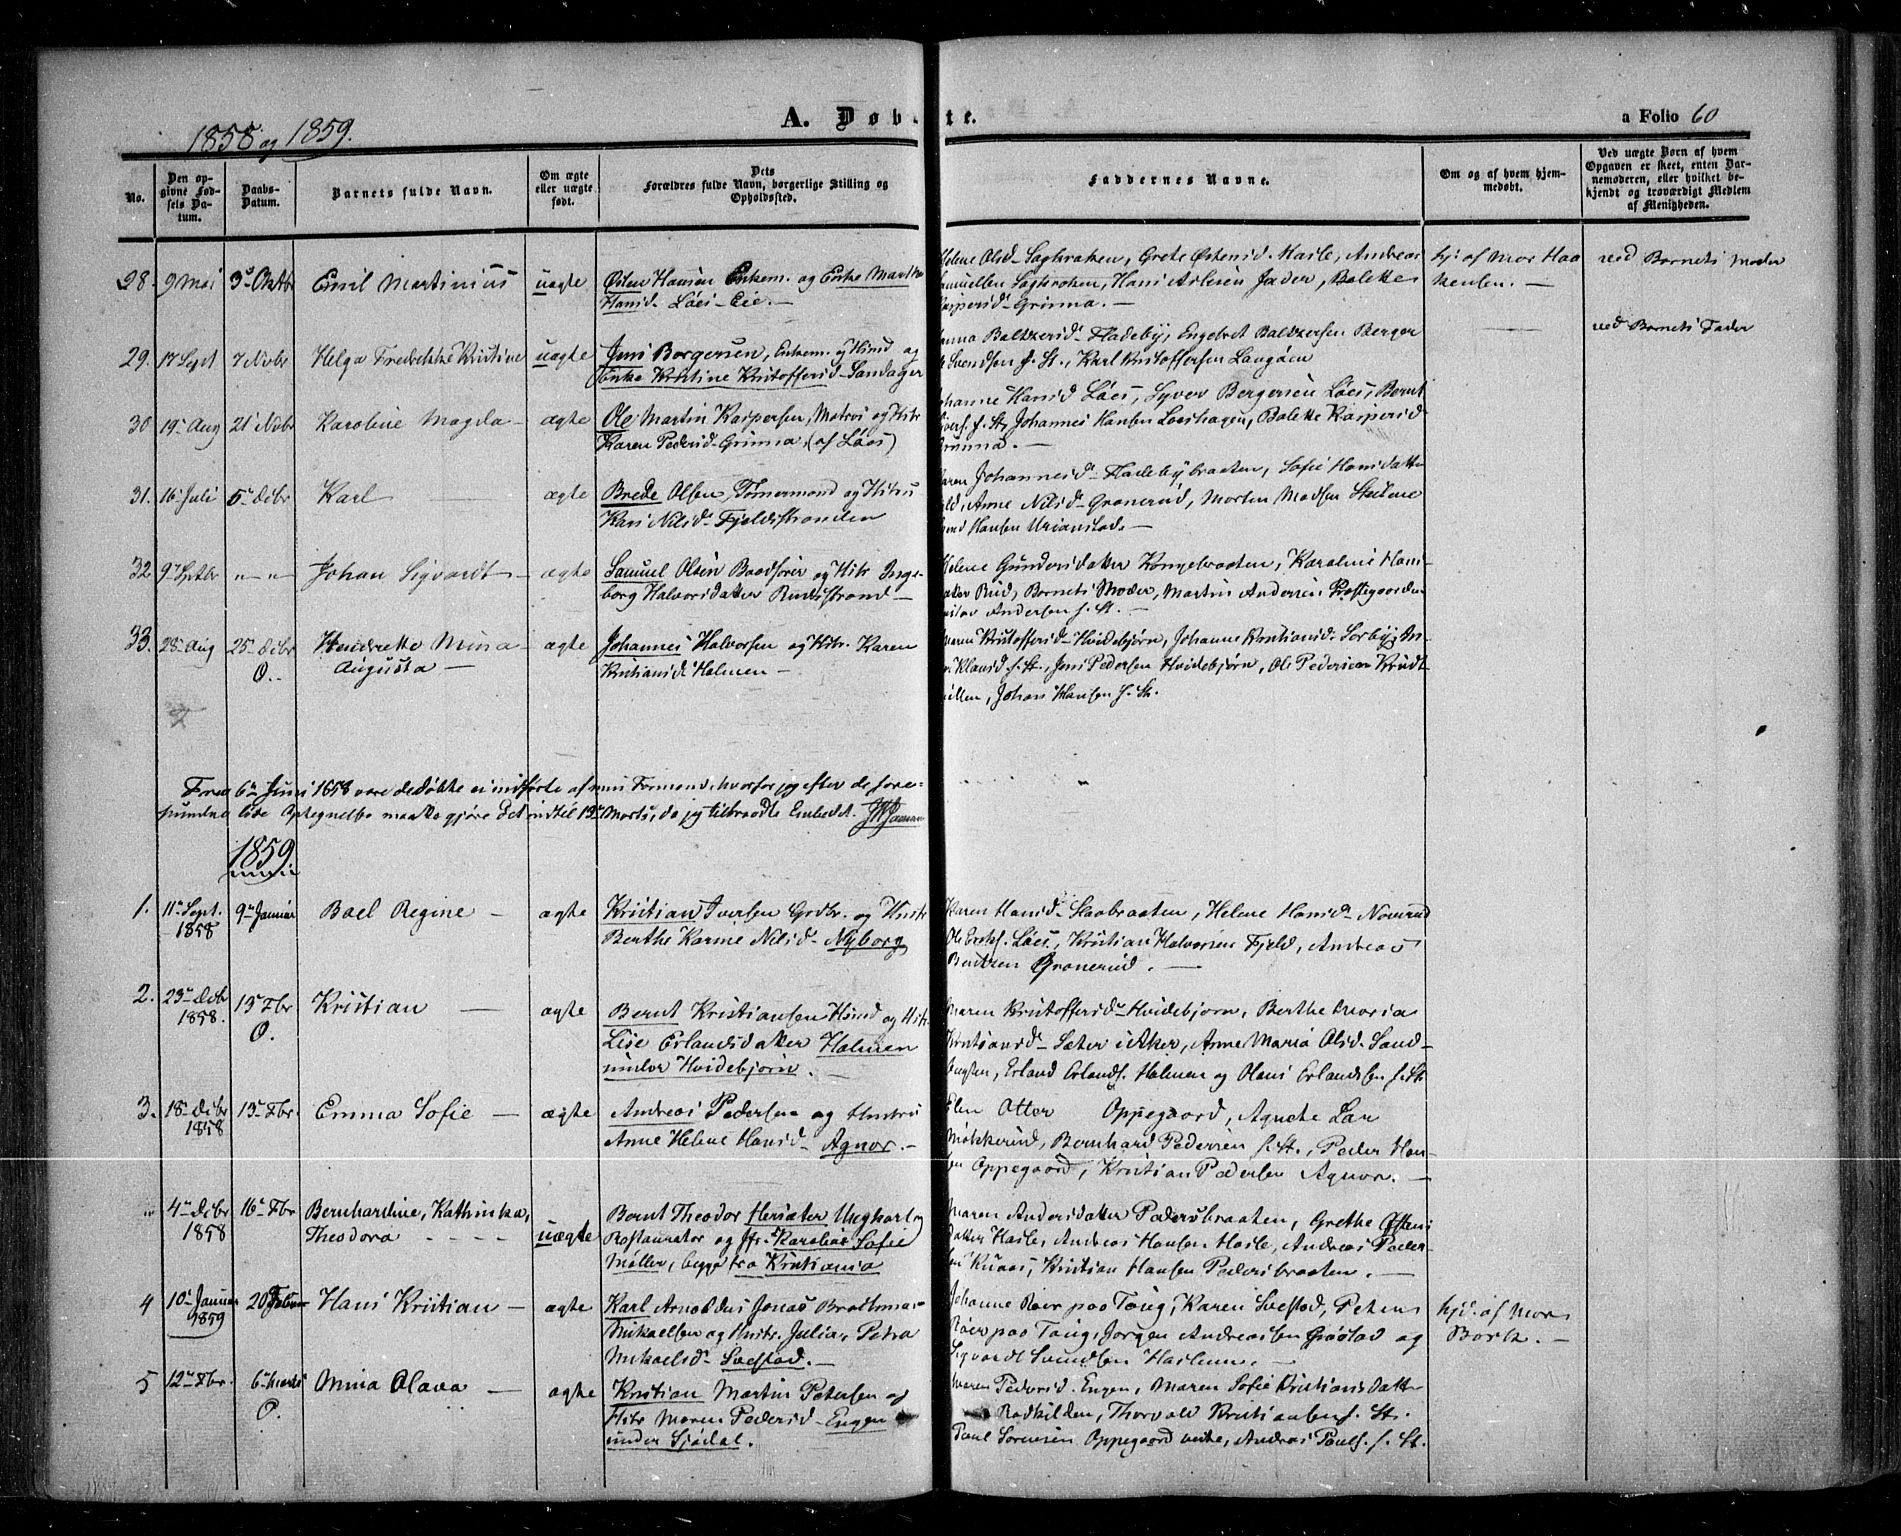 1858 og 1859.
A. Døbte.
a Folio 60
No.
Den opgivne Fødsels Datum.
Daabs-Datum.
Barnets fulde Navn.
Om ægte eller uægte født.
Dets Forældres fulde Navn, borgerlige Stilling og Opholdssted.
Faddernes Navne.
Om og af hvem hjemmedøbt.
Ved uægte Børn af hvem Opgaven er skeet, enten Barnemoderen, eller hvilket bekjendt og troværdigt Medlem af Menigheden.
28. 9 Mai 3 Oktbr Emil Martinius uægte Østen Hansen Enkem. og Enke Marthe
Hansd. Løes-Eie.—
Helene Olsd. Saghraken, Grete Østensd. Hasle, Andreas
Saghraken, Hans Jader, Bolette
Kaspersd. Grinna.—
hj. af Mor Haa
kensen.—
ved Barnets Moder
29. 17 Sept 7 Novbr Helga Fredrikke Kristine uægte Jens Borgersen, Enkem. og Husmd og
Enke Kristine Kristoffersd. Sandager
Baltzersd. Fladeby, Engebret Baltzersen Berger
Svendsen f. St., Karl Kristoffersen Langåen
ved Barnets Fader
30 19 Aug 21 Novbr Karoline Magda— ægte Ole Martin Kaspersen, Matros og Hstr
Karen Pedersd. Grinna, (af Løes)
Johanne Hansd. Løes, Syver Bergersen Løes, Bernt
f. St, Johannes Hansen Loeshagen, Bolette Kaspersd.
Grinna.—
31. 16 Juli 5 Debr Karl — ægte Brede Olsen, Tømermand og Hstru
Kari Nilsd. Fjeldstranden
Johannesd. Fladebybraaten, Sofie Hansdatter
Anne Nilsd. Granerud, Morten Madsen Stellene
Hansen Urianstad.—
32 9 Sptbr „ — „ Johan Sigvardt— ægte Samuel Olsen Baadfører og Hstr. Inge-
borg Halvorsdatter Rudsstrand—
Helene Gundersdatter Kongebraaten, Karoline Hans
datter Rud, Barnets Moder, Martin Andersen Præstegaarden
Andersen f. St.—
33. 28 Aug 25 Debr Hendrette Mina ægte Johannes Halvorsen og Hstr. Karen
O. Augusta— Kristiansd. Holmen—
Maren Kristoffersd. Hvidebjørn, Johanne Kristiansd. Sorby,
Klausd. f. St., Jens Pedersen Hvidebjørn, Ole Pedersen Krudt
møllen, Johan Hansen f. St.
Fra 6te Juni 1858 vare de Døbte ei indførte af min Formand, hvorfor jeg efter de fore-
fundne løse Optegnelse maatte gjøre det indtil 13 Marts, da jeg tiltraadte Embedet.
1859.
1. 11 Sept. 9 Januar Bael Regine — ægte Kristian Iversen Grdbr. og Hustr
1858 Berthe Karine Nilsd. Nyborg
Karen Hansd. Skaabraaten, Helene Hansd. Noverud
Ole Løes, Kristian Halvorsen Fjeld, Andreas
Berntzen Granerud.—
2. 23 Debr 13 Fbr Kristian — ægte Bernt Kristiansen Husmd og Hstr.
1858. O. Lise Erlandsdatter Holmen
under Hvidebjørn.—
Maren Kristoffersd. Hvidebjørn, Berthe Maria
Kristiansd. Sæter i Aker, Anne Maria Olsd. Sand-
bugten, Erland Erlands. Holmen og Olaus Erlandsen f. St.
3. 18 Debr 13 Fbr. Emma Sofie — ægte Andreas Pedersen og Hustru
1858 Anne Helene Hansd. Agnor.—
Elen Otter Oppegaard, Agnete Lar
Møkkerud, Bernhard Pedersen f. St., Peder Han-
sen Oppegaard, Kristian Pedersen Agnor.—
„ 4 Debr 16 Fbr Bernhardine, Kathinka, uægte Bernt Theodor Hersæter Ungkarl og
1858 Theodora Restauratør og Karoline Sofie
Møller, begge fra Kristiania
Maren Andersdatter Pedersbraaten, Grethe Østens
datter Hasle, Andreas Hansen Hasle, Andreas Peder-
sen Knaas, Kristian Hansen Pedersbraaten.—
4 10 Januar 20 Februar Hans Kristian — ægte Karl Arnoldus Jonas Brathman
1859 Mikaelsen og Hustr. Julia, Petra
Mikaelsd. Svestad.—
Johanne Roer paa Toug, Karen Svestad, Petter
Roer paa Toug, Jørgen Andreassen Grøstad og
Sigvardt Svendsen Haslum.—
hjd. af Mor
Bork.—
5 12 Fbr. 6 Marts Mina Olava — ægte Kristian Martin Petersen og
O. Hstr Maren Pedersd. Engen
under Sjødal.
Maren Pedersd. Engen, Maren Sofie Kristiansdatter
Rodkilden, Thorvald Kristiansen f. St.
Paul Sørensen Oppegaard, Andreas Pauls. f. St.